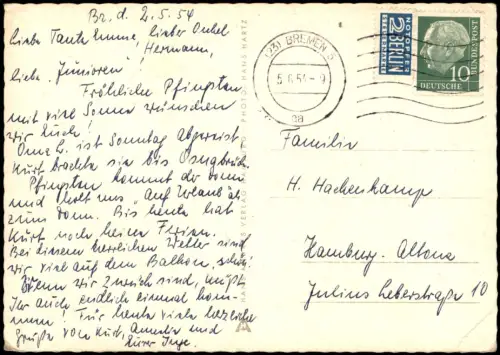 Br. d. 2.5.54
Liebe Tante Emma, lieber Onkel
Hermann,
liebe "Junioren"!
Fröhliche Pfingsten
mit viel Sonne wünschen
wir Euch!
Oma L. ist Sonntag abgereist.
Kurt brachte sie bis Osnabrück.
Pfingsten kommt er dann
und holt uns "auf Urlaub" ab
zum Bonn. Bis heute hat
Kurt noch keine Ferien.
Bei diesem herrlichen Wetter sind
wir viel auf dem Balkon,
Wenn wir zurück sind, müßt
Ihr auch endlich einmal kom-
men! Für heute viele herzliche
Grüße von Kurt, und
Eurer Inge.
HANS HARTZ
(23) BREMEN 5
5.6.54-9
aa
NOTOPFER
2 BERLIN
STEUERMARKE
10
DEUTSCHE
BUNDESPOST
Familie
H. Hachenkamp
Hamburg-Altona
Julius Leberstraße 10